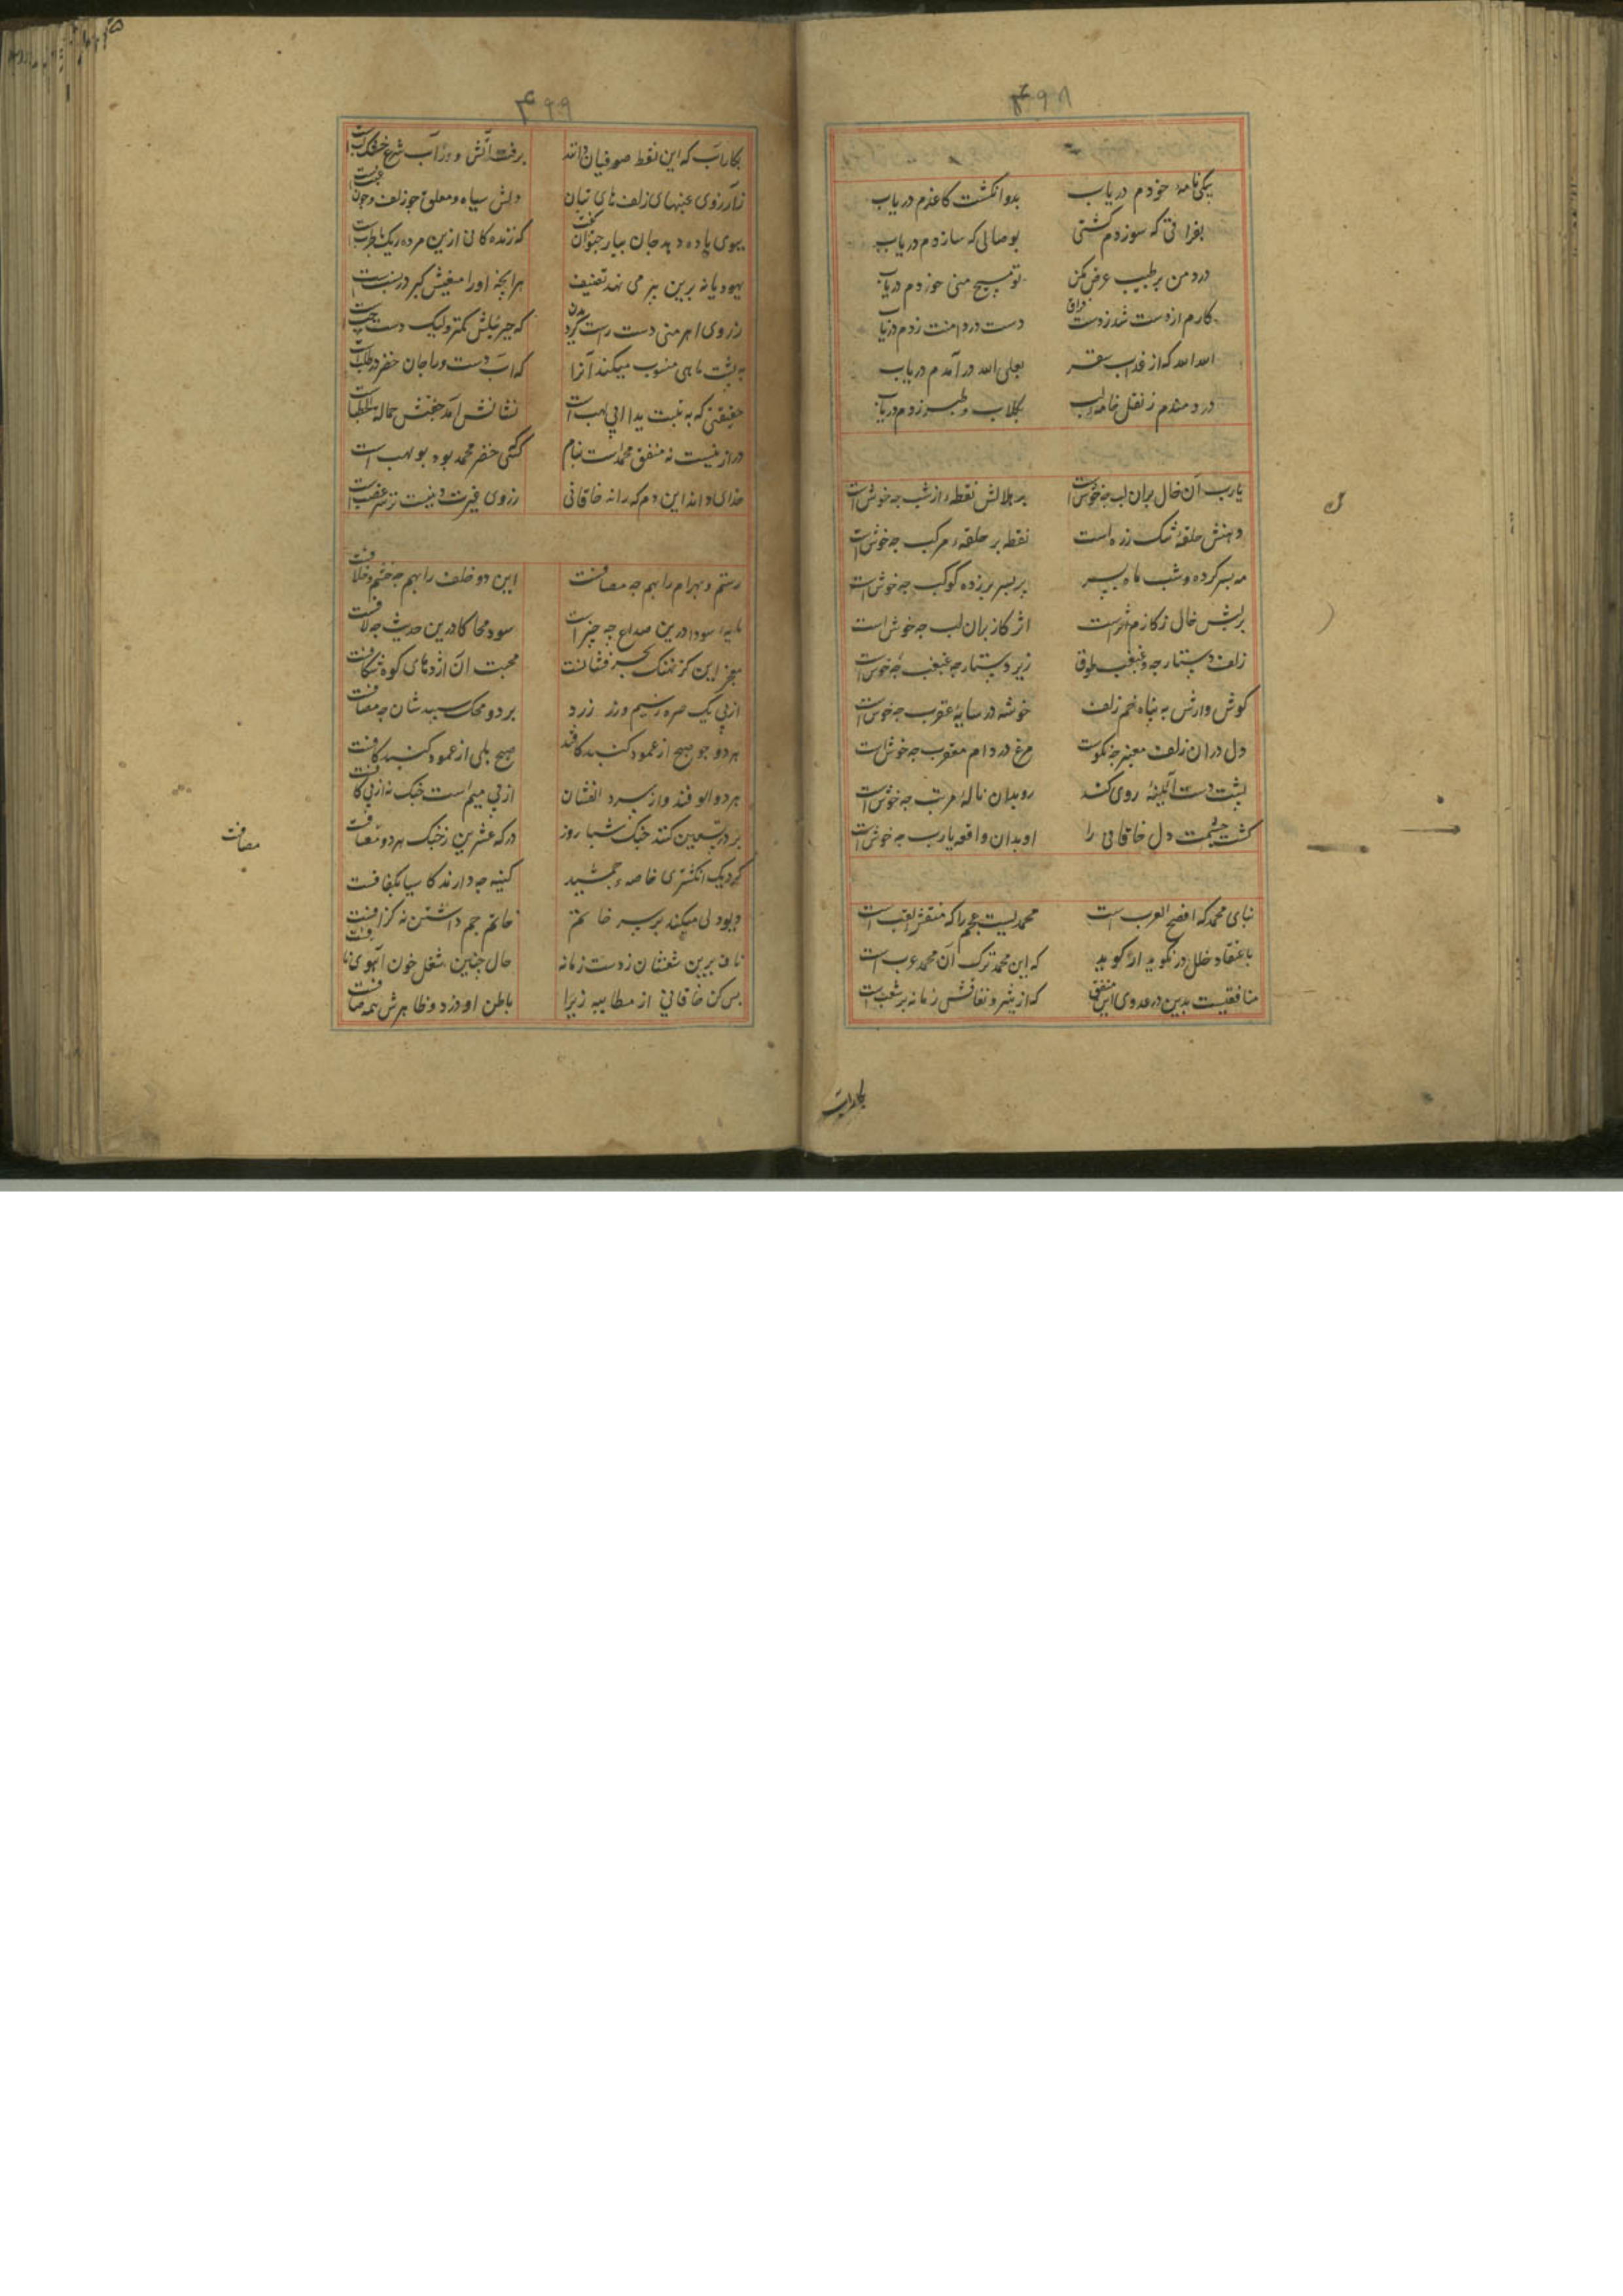 ۴۹۸
بیکی نامهٔ خودم دریاب
بدو انکشت کاغذم دریاب
بفراقی که سوزدم کشتی
بوصالی که سازدم دریاب
درد من بر طبیب عرض مکن
تو مسیح منی خودم دریاب
کارم از دست شد ز دست فراق
دست در دامنت زدم دریاب
الله الله که از عذاب سقر
بعلی الله درآمدم دریاب
دردمندم ز نقل خانه لب
بکلاب و طبرزدم دریاب
یارب آن خال بران لب چه خوش است
بر هلالش نقطه از شب چه خوش است
دهنش حلقهٔ تنک زره است
نقطه بر حلقهٔ مرکب چه خوش است
مه بسر کرده و شب ماه سپر
بر سپر بر زده کوکب چه خوش است
بر لبش خال ز کازم اثر است
اثر کاز بران لب چه خوش است
زلف دستارچه و غبغب طوق
زیر دستارچه غبغب چه خوش است
کوش وارش به پناه خم زلف
خوشه در سایهٔ عقرب چه خوش است
دل دران زلف معنبر چه نکوست
مرغ در دام معقرب چه خوش است
پشت دست آئینهٔ روی کند
رو بدان نالهٔ مرتب چه خوش است
کشت چشمت دل خاقانی را
او بدان واقعه یارب چه خوش است
نبای محمد که افصح العرب است
محمدیست عجم را که منتقش لقب است
باعتقاد خلل در نکوید ار کوید
که این محمد ترک آن محمد عرب است
منافقیست بدین در عدوی این متفق
که از شر و نفاقش زمانه بر شعب است
بکارآب
۴۹۹
بکار آب که این نقط صوفیان دانند
برفت آتش و وز آب شرع خشک لب است
ز آرزوی عنبهای زلف های بتان
دلش سیاه و معلق چو زلف و چون عنب است
ببوی باده دهد جان بیار حیوان کفت
که زنده کانی ازین مرده ریک با طرب است
یهودیانه برین بر می نهد تصنیف
هر آنچه او را مغیش کبر در نسب است
ز روی اهرمنی دست راست کرد بدان
که جبرئیلش کمتر ولیک دست چپ است
به پشت ماهی منسوب میکند آنرا
که آب دست ورا جان خضر در طلب است
حقیقتی که به تبت یدا ابی لهب است
نشانش آمد جفتش حمالة الحطب است
دراز نیست نه متفق محمد است بنام
کنی خضر محمد بود بو لهب است
خدای داند این دم که راند خاقانی
ز روی غیرت دینیست نز سر غضب است
رستم و بهرام را بهم چه مصافست
این دو خلف را بهم چه خشم و خلافست
مایهٔ سودا درین صداع چه چیز است
سود محاکا درین حدیث چه لافست
بحر این کز نهنک بحر فشانست
محبت آن اژدهای کوه شکافست
از پی یک صره ز سیم و زر زرد
بر دو محک سپید شان چه مصافست
هر دو چو صبح از عمود کنبد کافند
صبح بلی از عمود کنبد کافست
هر دو الو فند و از سرد الفشان
از پی میم است جنک نه از پی کافست
بر در تسعین کنند جنک شبا روز
در که عشرین ز جنک هر دو معافست
کر دیک انکشتری خاصهٔ جمشید
کینه چه دارند کاسیا بکفافست
دیو دلی میکند بر سر خاتم
خاتم جم داشتن نه کزافست
ناف برین شغلشان زدست زمانه
حال چنین شغل خون آهوی نافست
بس کن خاقانی از مطایبه زیرا
باطن او درد و ظاهرش همه صافست
مصافت